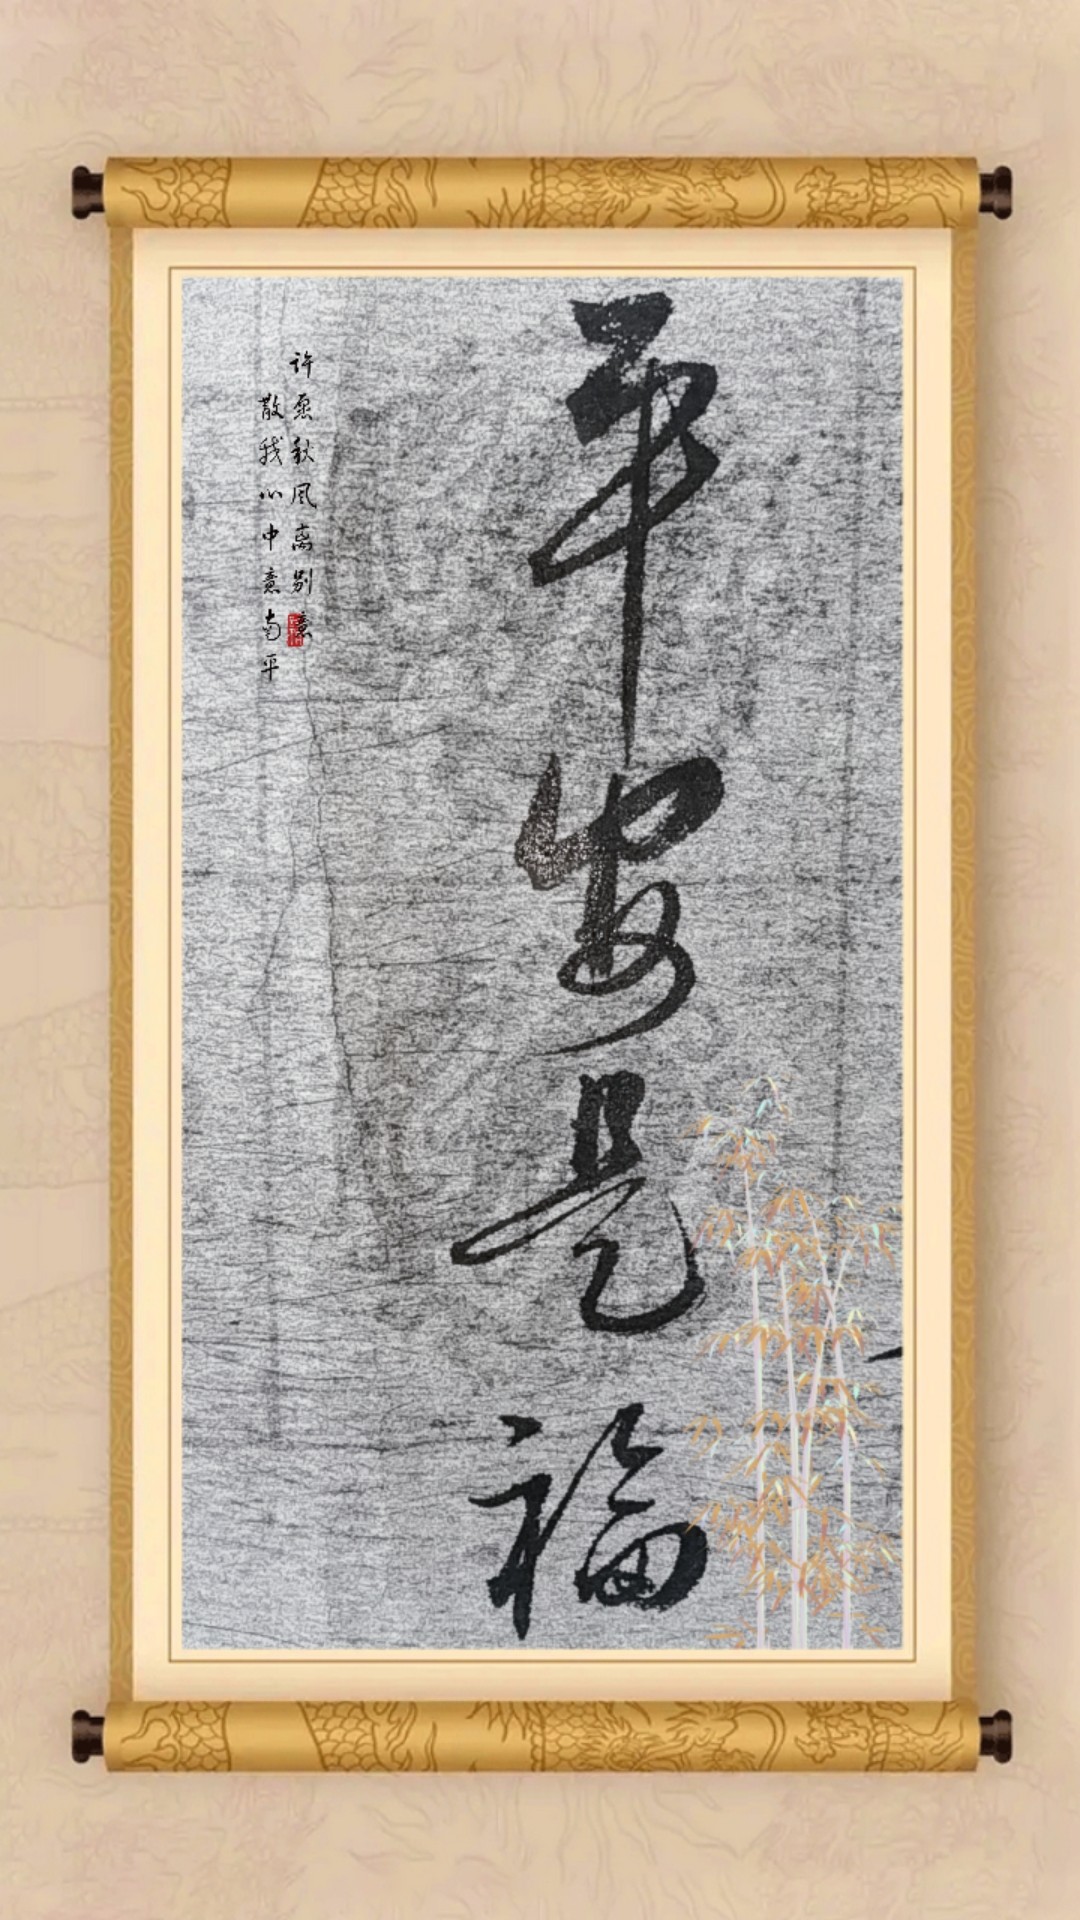 平安是福
许愿秋风离别意
散我心中意南平